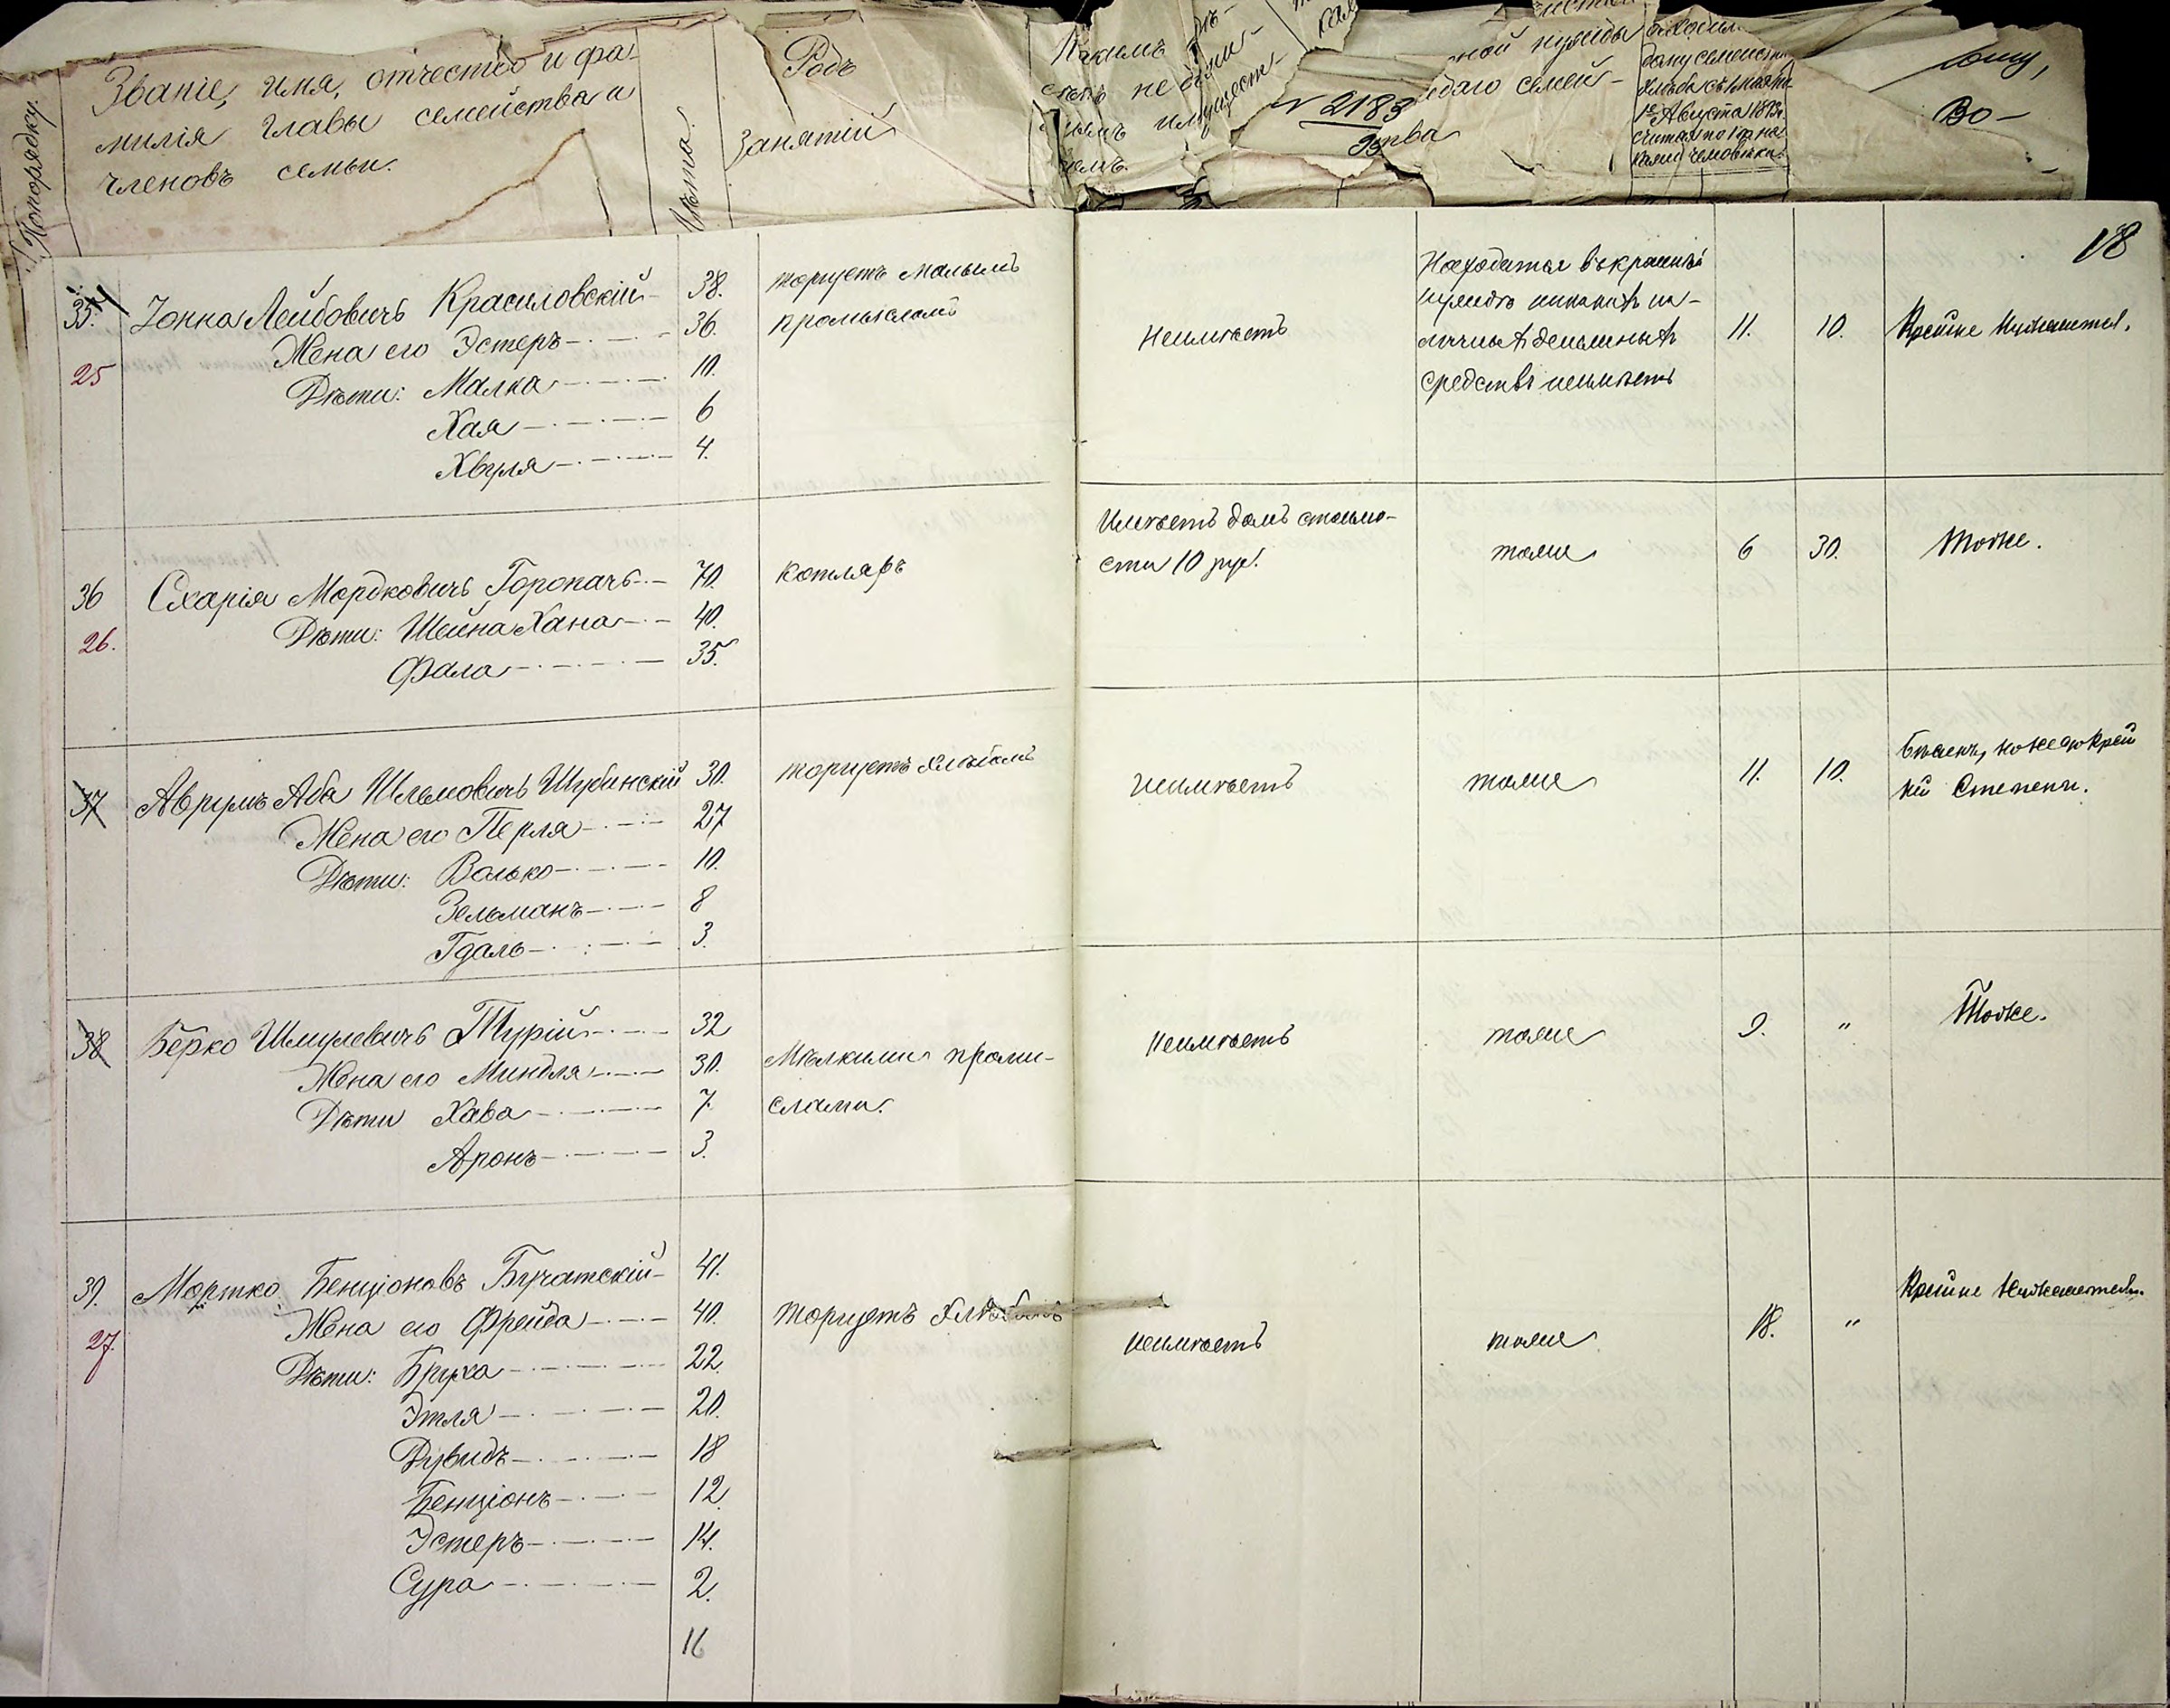 Попорядку.
Званіе, имя, отчество и фа-
милія главы семейства и
членовъ семьи.
Лѣта.
Родъ
занятій
Какимъ
не
имущест-
№ 2183
ной нужды
семей-
ства
дому семейст
хлѣба съ
1е Августа
считая по 1 п. на
человѣка.
Во-
18
35. Іонна Лейбовичъ Красиловскій 38. торгуетъ малымъ
Жена его Эстеръ 36. промысломъ
25 Дѣти: Малка 10.
Хая 6
Хвуля 4.
Неимѣетъ
Находится въ крайней
нуждѣ никакихъ на-
личныхъ денежныхъ
средствъ неимѣетъ
11. 10. Крайне нуждается.
36 Схарія Мордковичъ Горопачъ 70. котляръ
26. Дѣти: Шейна Хана 40.
Фала 35.
Имѣетъ домъ стоимо-
сти 10 руб. тоже 6 30. Тоже.
37 Аврумъ Аба Шльомовичъ Шубинскій 30. торгуетъ хлѣбомъ
Жена его Перля 27
Дѣти: Волько 10.
Зельманъ 8
Гдаль 3.
неимѣетъ тоже 11. 10. Бѣденъ, но не до край
ней Степени.
38 Берко Шмулевичъ Турій 32
Жена его Миндля 30. Мѣлкими проми-
Дѣти Хава 7. слами.
Аронъ 3.
неимѣетъ тоже 9. " Тоже.
39. Мортко Бенціоновъ Бучатскій 41.
Жена его Фрейда 40. торгуетъ хлѣбомъ
27. Дѣти: Бруха 22.
Этля 20.
Дувидъ 18
Бенціонъ 12.
Эстеръ 14.
Сура 2.
16
неимѣетъ тоже 18. " Крайне нуждается.